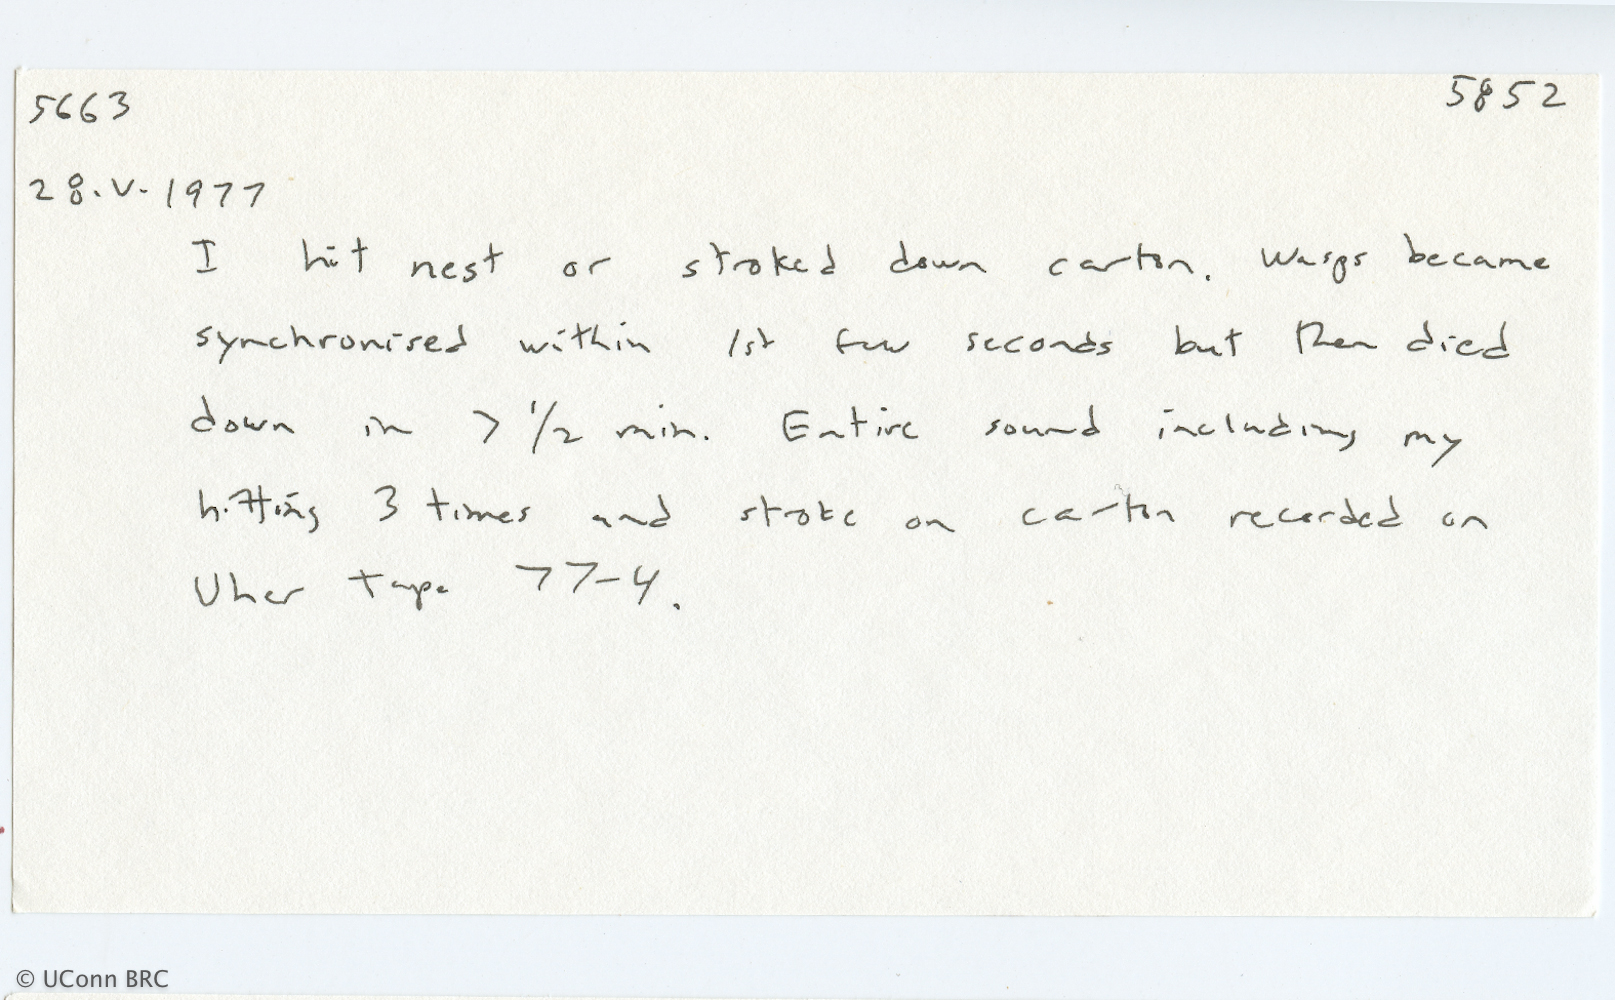 5663 5852
28.V.1977
I hit nest or stroked down carton. Wasps became
synchronised within 1st few seconds but then died
down in > 1/2 min. Entire sound including my
hitting 3 times and stroke on carton recorded on
Uher tape 77-4.
© UConn BRC